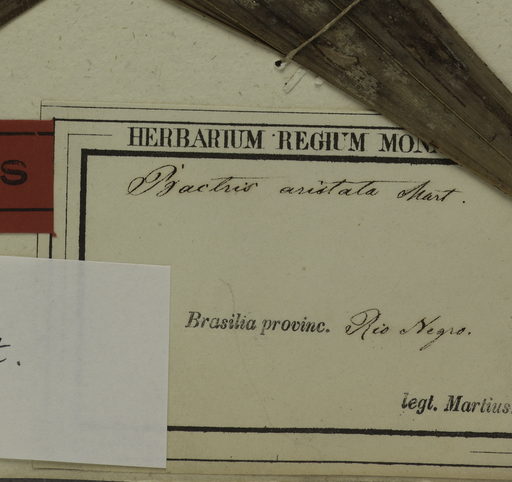 HERBARIUM REGIUM MON
S
Bactris aristata Mart.
Brasilia provinc. Rio Negro.
t.
legt. Martius.